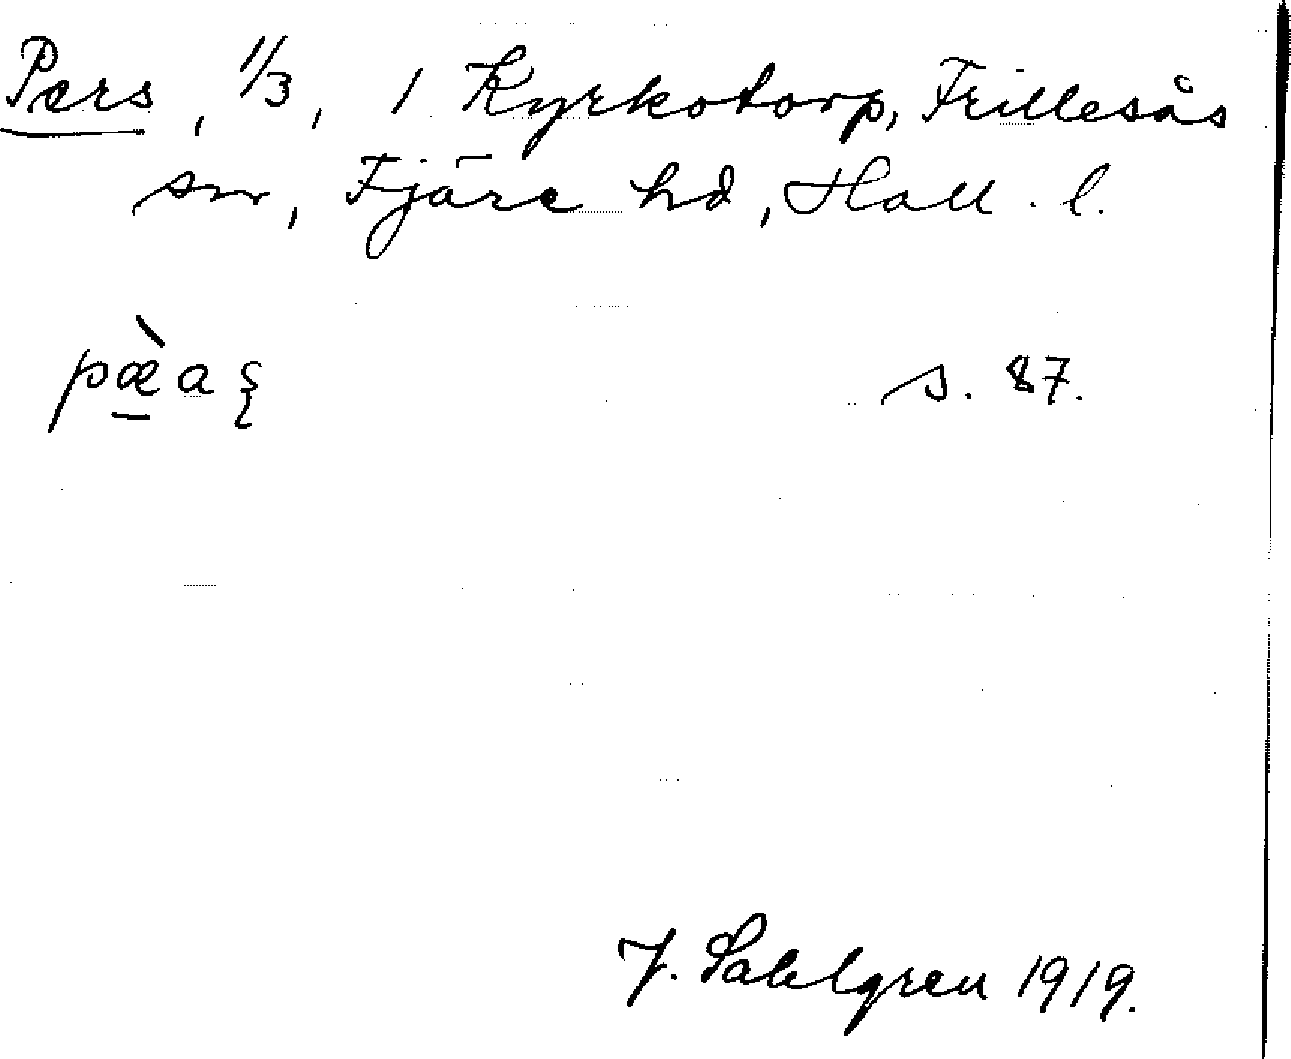 Pers, 1/3, 1 Kyrkotorp, Frillesås
sn, Fjäre hd, Hall. l.
s. 87.
J. Sahlgren 1919.